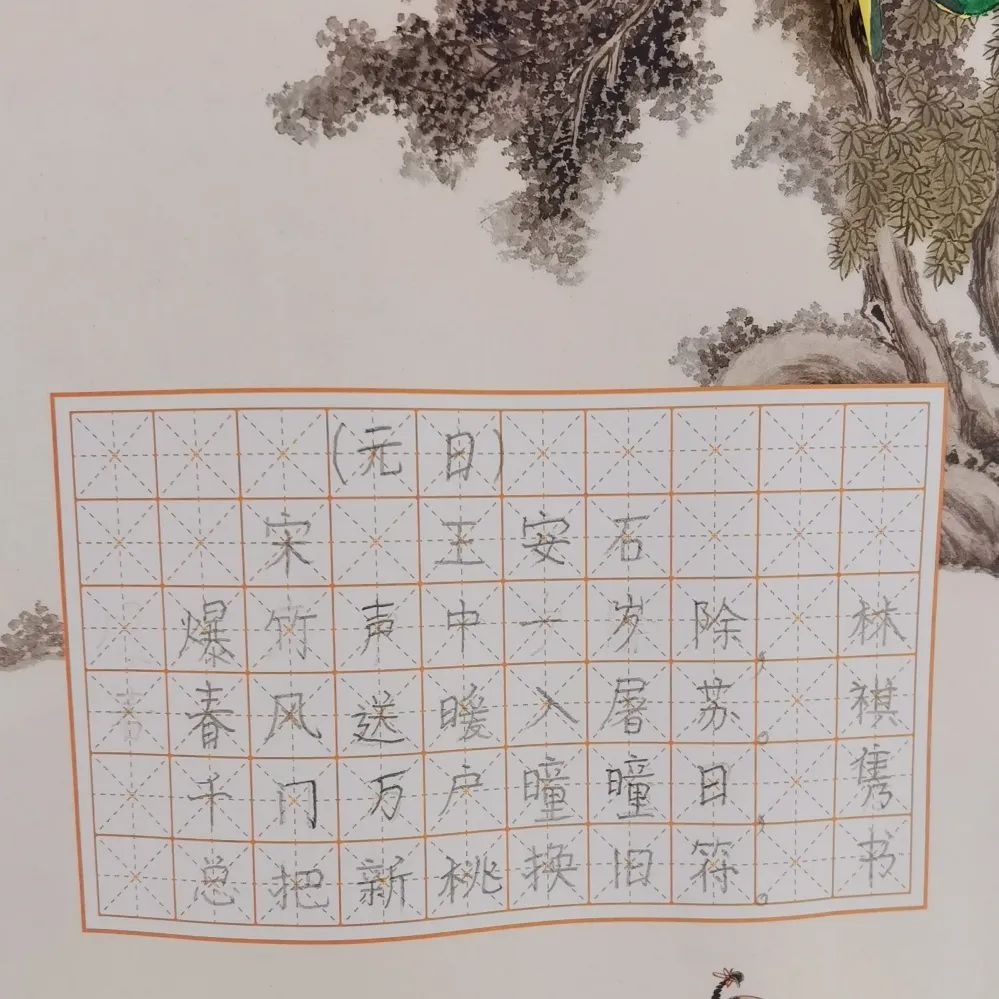 (元日)
宋 王安石
爆竹声中一岁除,
春风送暖入屠苏。
千门万户曈曈日,
总把新桃换旧符。
林祺隽书